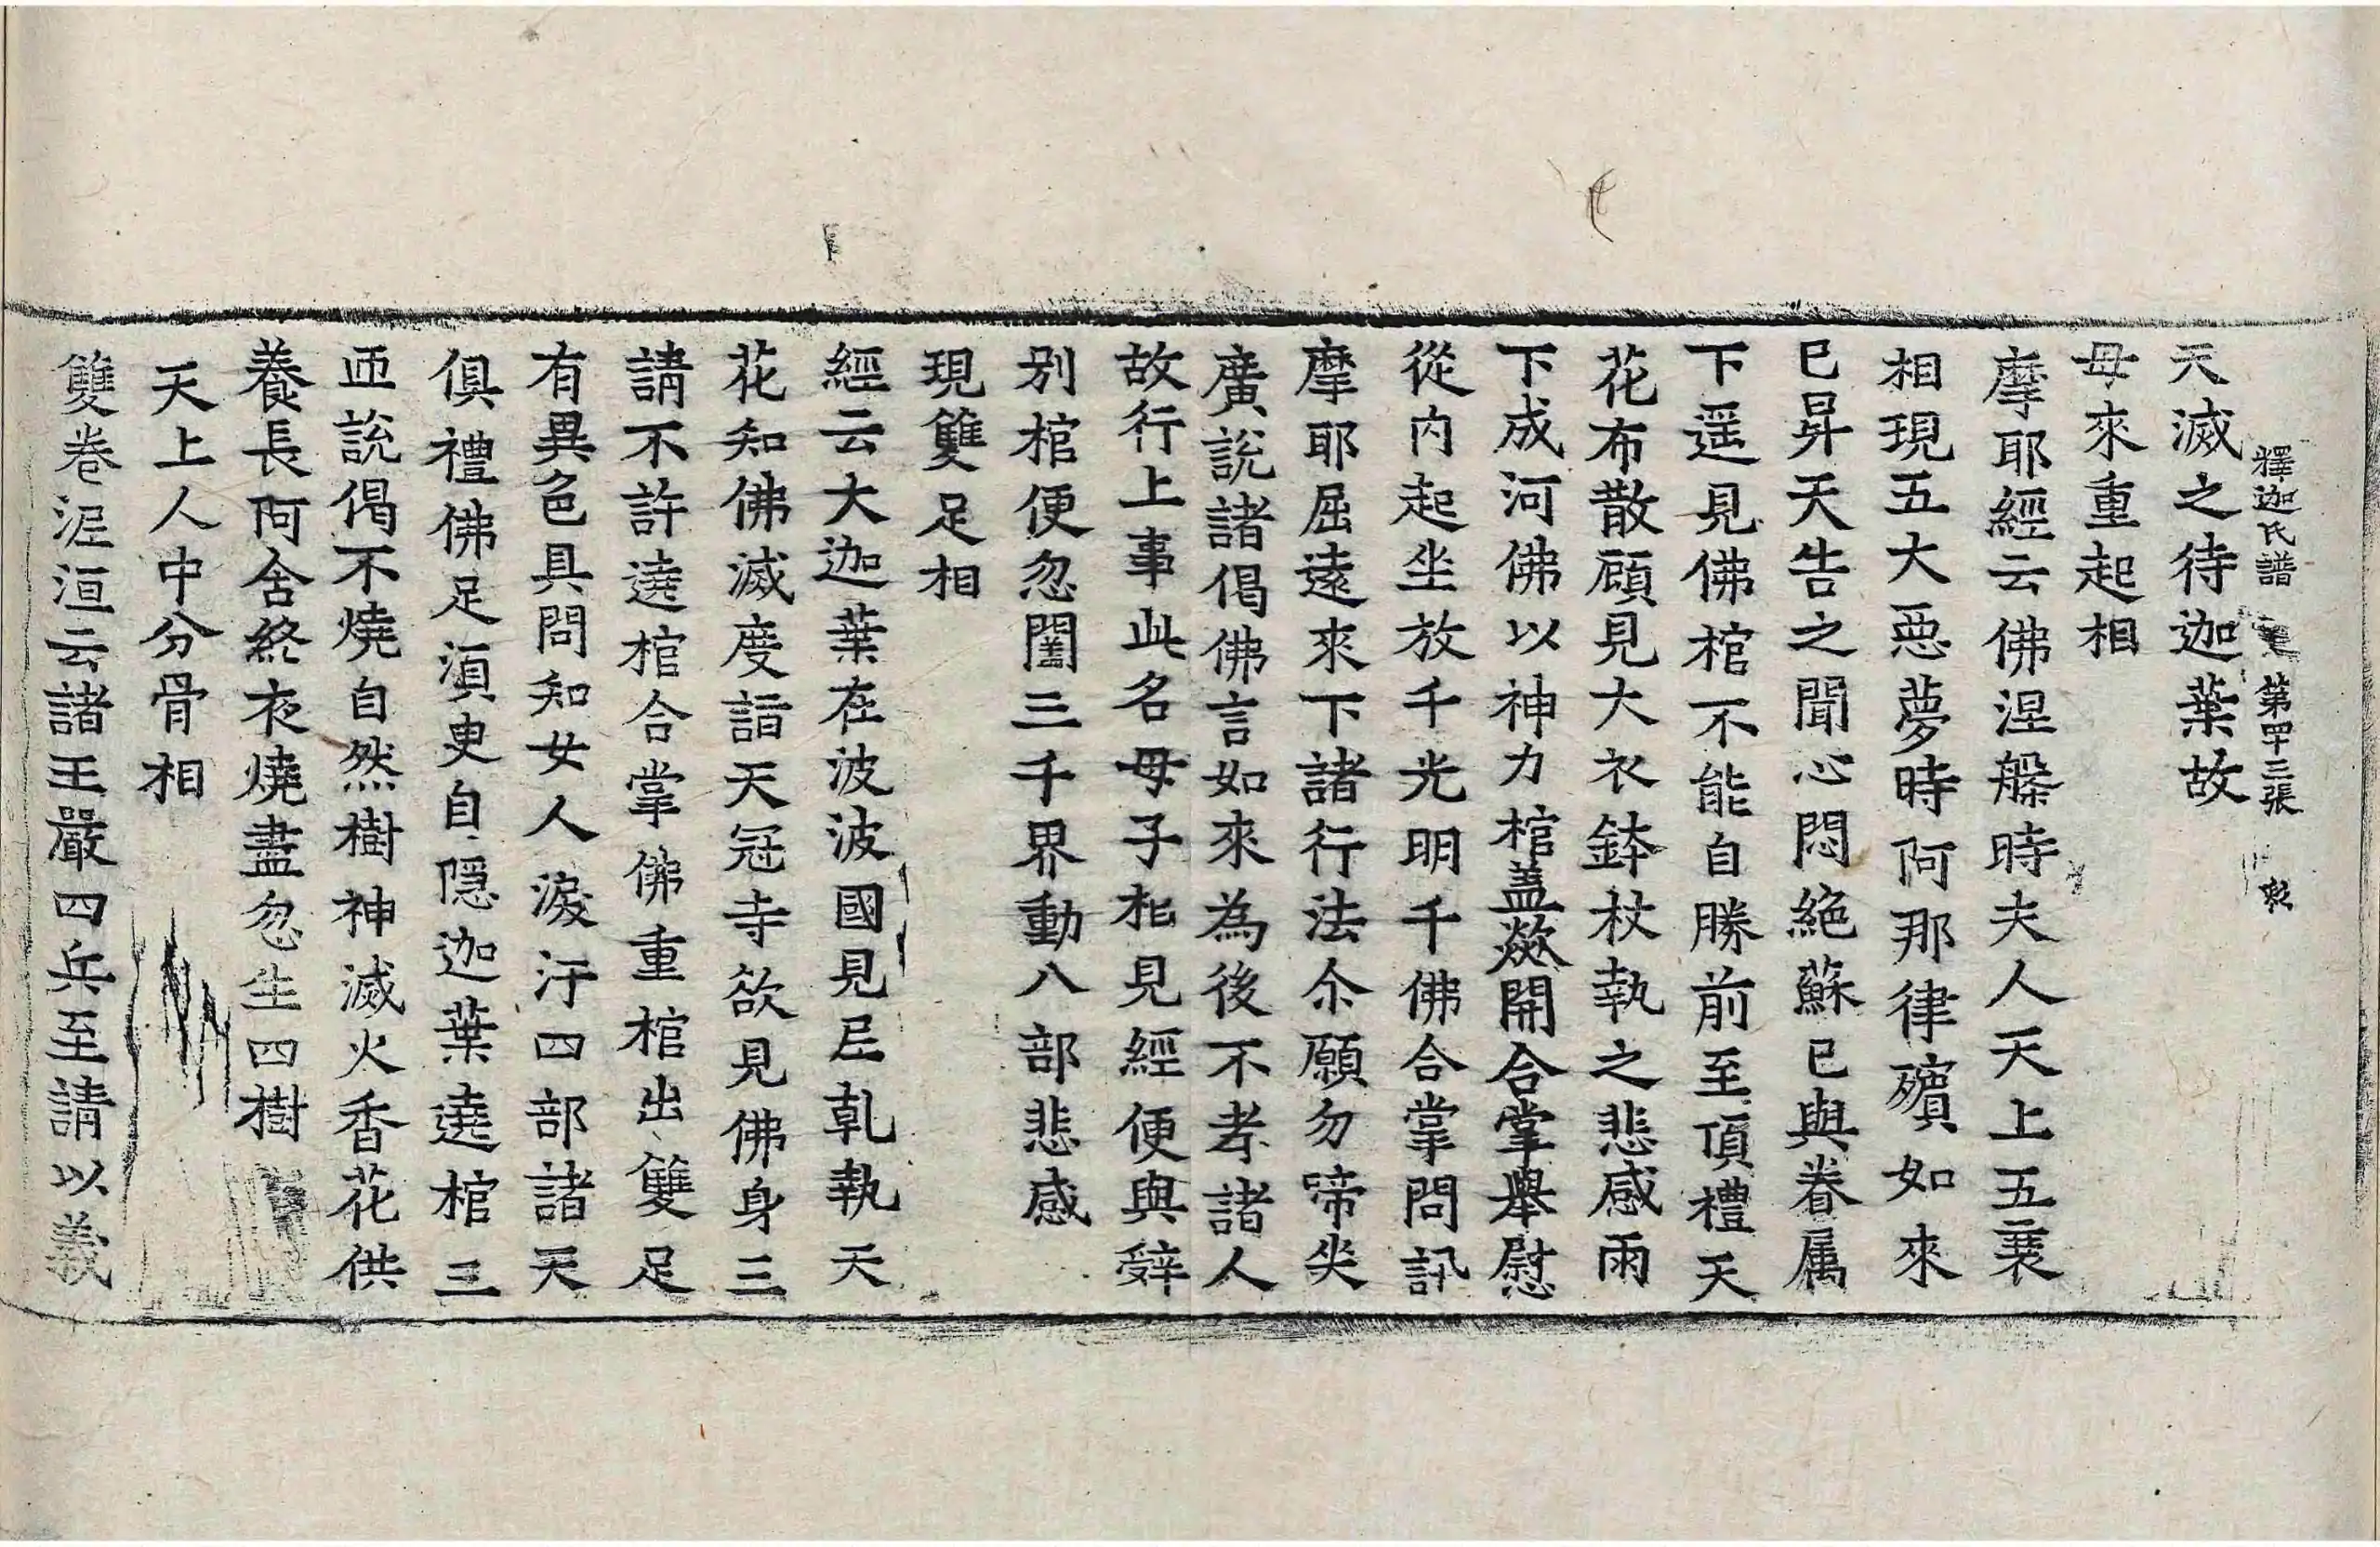 釋迦氏譜 第四十三張
天滅之待迦葉故
母來重起相
摩耶經云佛涅槃時夫人天上五衰
相現五大惡夢時阿那律殯如來
已昇天告之聞心悶絶蘇已與眷属
下遥見佛棺不能自勝前至頂禮天
花布散顧見大衣鉢杖執之悲感雨
下成河佛以神力棺盖歘開合掌舉慰
從内起坐放千光明千佛合掌問訊
摩耶屈遠來下諸行法尒願勿啼㖇
廣說諸偈佛言如來為後不孝諸人
故行上事此名母子相見經便與辝
别棺便忽闔三千界動八部悲感
現雙足相
經云大迦葉在波波國見尼乹執天
花知佛滅度詣天冠寺欲見佛身三
請不許遶棺合掌佛重棺出雙足
有異色具問知女人淚汙四部諸天
俱禮佛足湏臾自隱迦葉遶棺三
迊說偈不燒自然樹神滅火香花供
養長阿含終夜燒盡忽生四樹
天上人中分骨相
雙卷泥洹云諸王嚴四兵至請以義